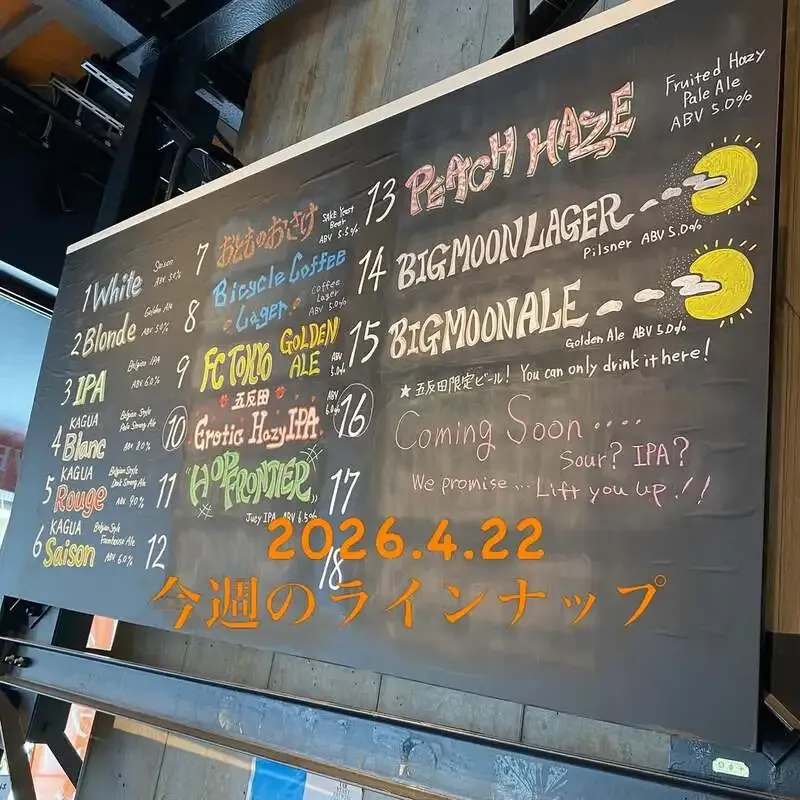 1 White Saison ABV 5.0%
2 Blonde Golden Ale ABV 5.0%
3 IPA Belgian IPA ABV 6.0%
4 KAGUA Blanc Belgian Style Pale Strong Ale ABV 8.0%
5 KAGUA Rouge Belgian Style Dark Strong Ale ABV 9.0%
6 KAGUA Saison Belgian Style Farmhouse Ale ABV 6.0%
7 おとものおさけ Sake Yeast Beer ABV 5.5%
8 Bicycle Coffee Lager Coffee Lager ABV 5.0%
9 FC TOKYO GOLDEN ALE ABV 5.0%
10 五反田 Erotic Hazy IPA ABV 6.0%
11 "HOP FRONTIER" Juicy IPA ABV 6.5%
12
13 PEACH HAZE Fruited Hazy Pale Ale ABV 5.0%
14 BIGMOON LAGER Pilsner ABV 5.0%
15 BIGMOON ALE Golden Ale ABV 5.0%
★五反田限定ビール! You can only drink it here!
16 Coming Soon ....
Sour? IPA?
We promise... Lift you up!!
17
18
2026.4.22
今週のラインナップ